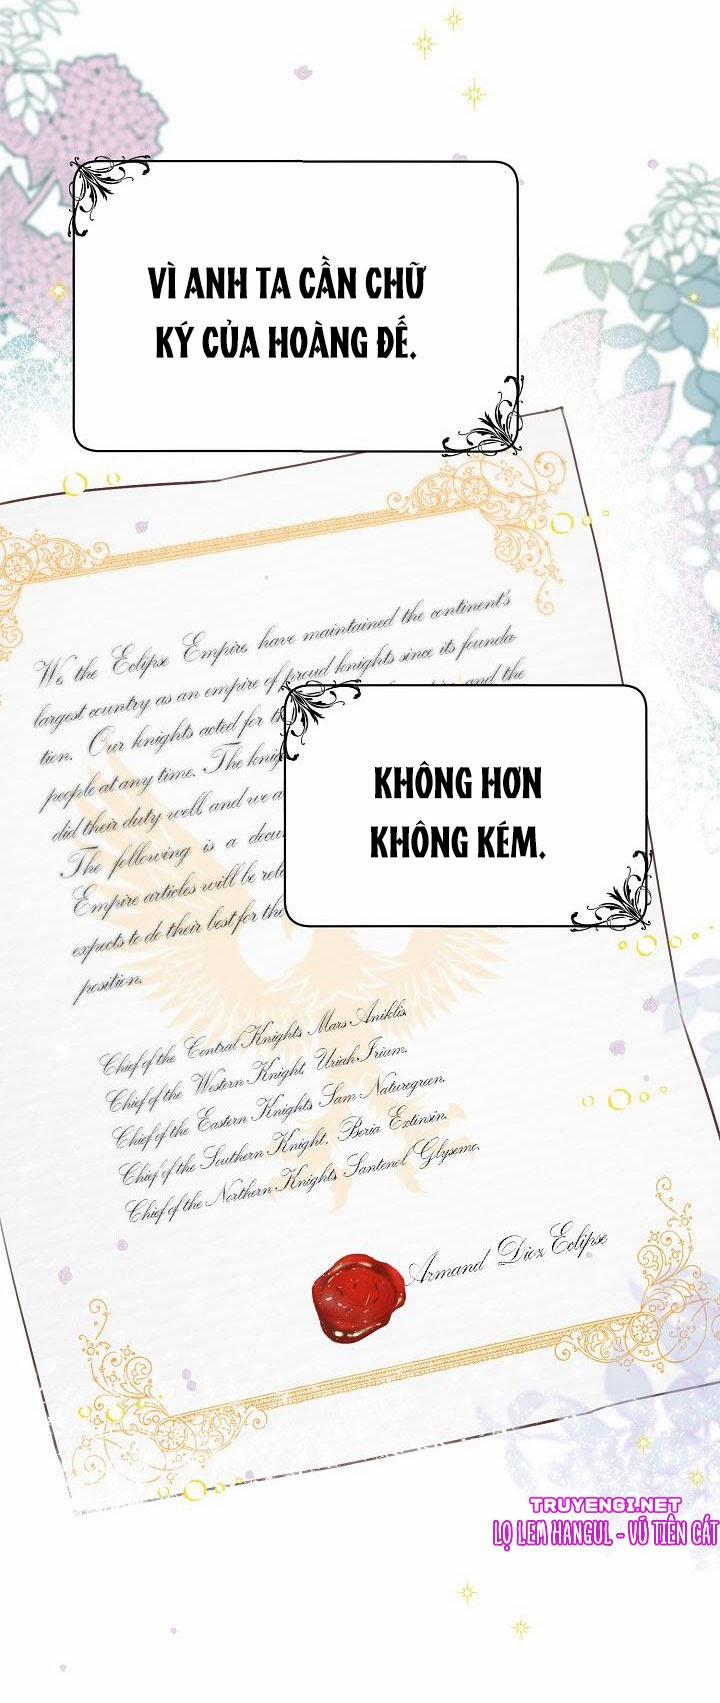 VÌ ANH TA CẦN CHỮ
KÝ CỦA HOÀNG ĐẾ.
We, the Eclipse Empire, have maintained the continent's
largest country as an empire of proud knights since its founda-
tion. Our knights acted for th and the
people at any time. The knig
did their duty well and we a
KHÔNG HƠN
KHÔNG KÉM.
The following is a docu
Empire articles will be rela
expects to do their best for the
position.
Chief of the Central Knights Mars Aniklis.
Chief of the Western Knight, Uriah Irium.
Chief of the Eastern Knights Sam Naturegreen.
Chief of the Southern Knight, Beria Extinsin.
Chief of the Northern Knights Santenol Glysemo.
Armand Dioz Eclipse
TRUYENGI.NET
LỌ LEM HANGUL - VÚ TIÊN CÁT